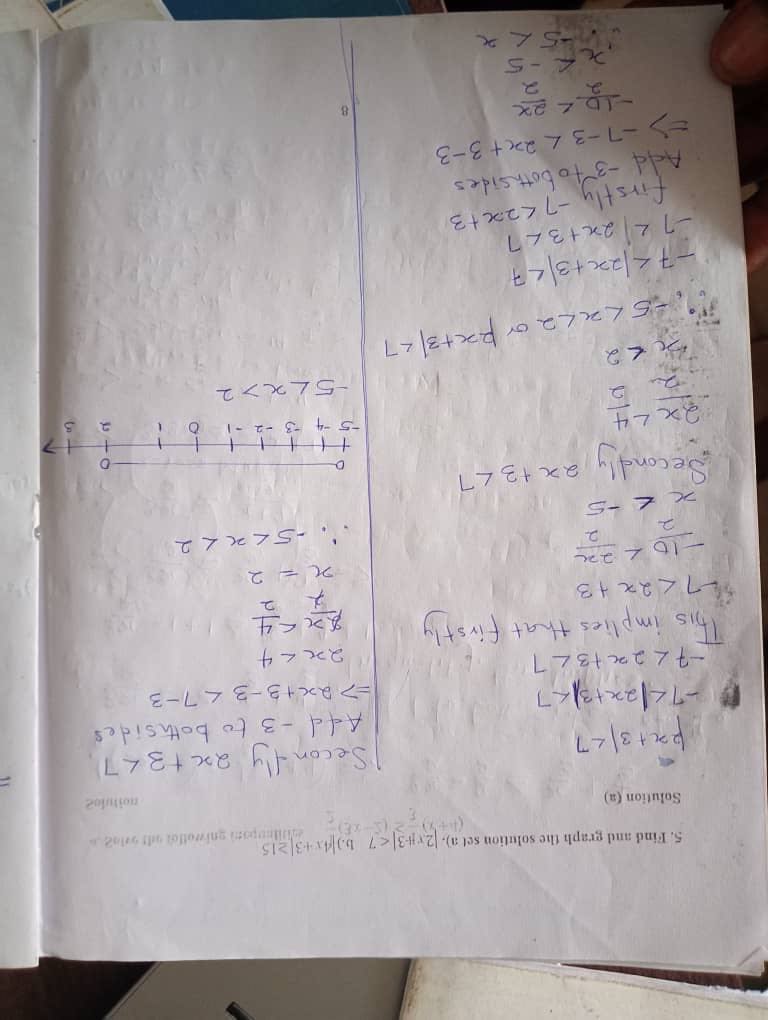 5. Find and graph the solution set a). |2x+3| < 7 b.) |4x+3| ≥ 15
Solution (a)
|2x+3| < 7
-7 < |2x+3| < 7
-7 < 2x+3 < 7
This implies that firstly
-7 < 2x+3
-10/2 < 2x/2
x < -5
Secondly 2x+3 < 7
2x/2 < 4/2
x < 2
∴ -5 < x < 2 or |2x+3| < 7
-7 < |2x+3| < 7
-7 < | 2x+3 < 7
firstly -7 < 2x+3
Add -3 to bothsides
=> -7-3 < 2x+3-3
-10/2 < 2x/2
x < -5
∴ -5 < x
Secondly 2x+3 < 7.
Add -3 to bothsides
=> 2x+3-3 < 7-3
2x < 4
2x/2 < 4/2
x = 2
∴ -5 < x < 2
-5 -4 -3 -2 -1 0 1 2 3
-5 < x > 2
8